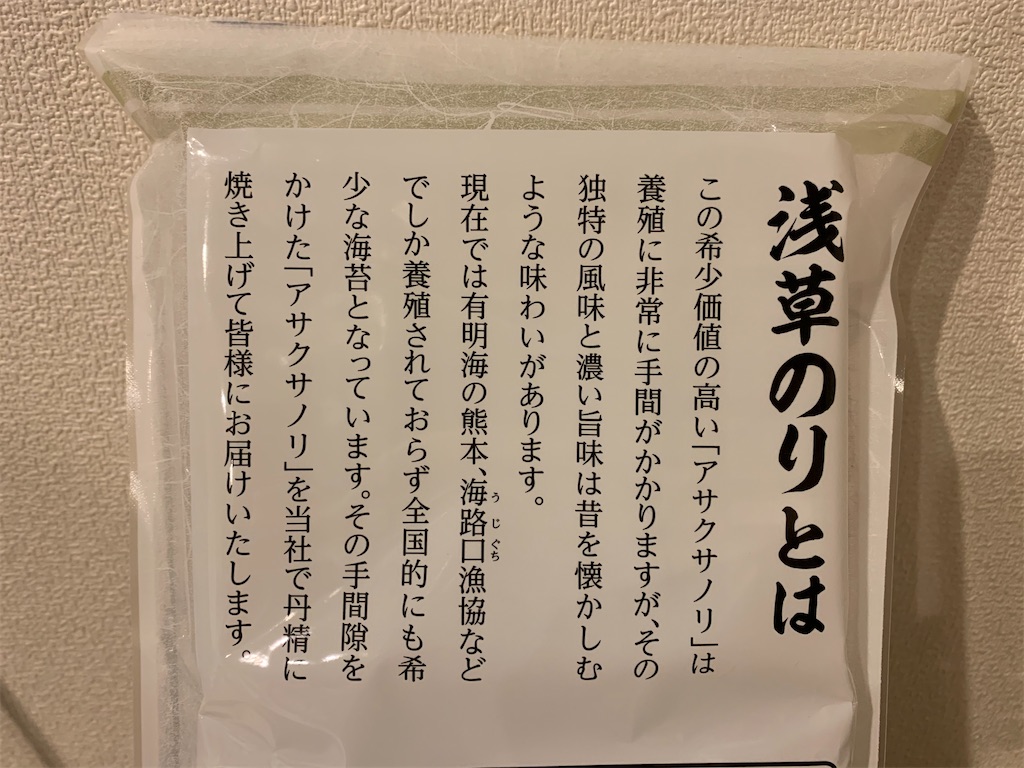 浅草のりとは
この希少価値の高い「アサクサノリ」は
養殖に非常に手間がかかりますが、その
独特の風味と濃い旨味は昔を懐かしむ
ような味わいがあります。
現在では有明海の熊本、海路口漁協など
うじぐち
でしか養殖されておらず全国的にも希
少な海苔となっています。その手間隙を
かけた「アサクサノリ」を当社で丹精に
焼き上げて皆様にお届けいたします。